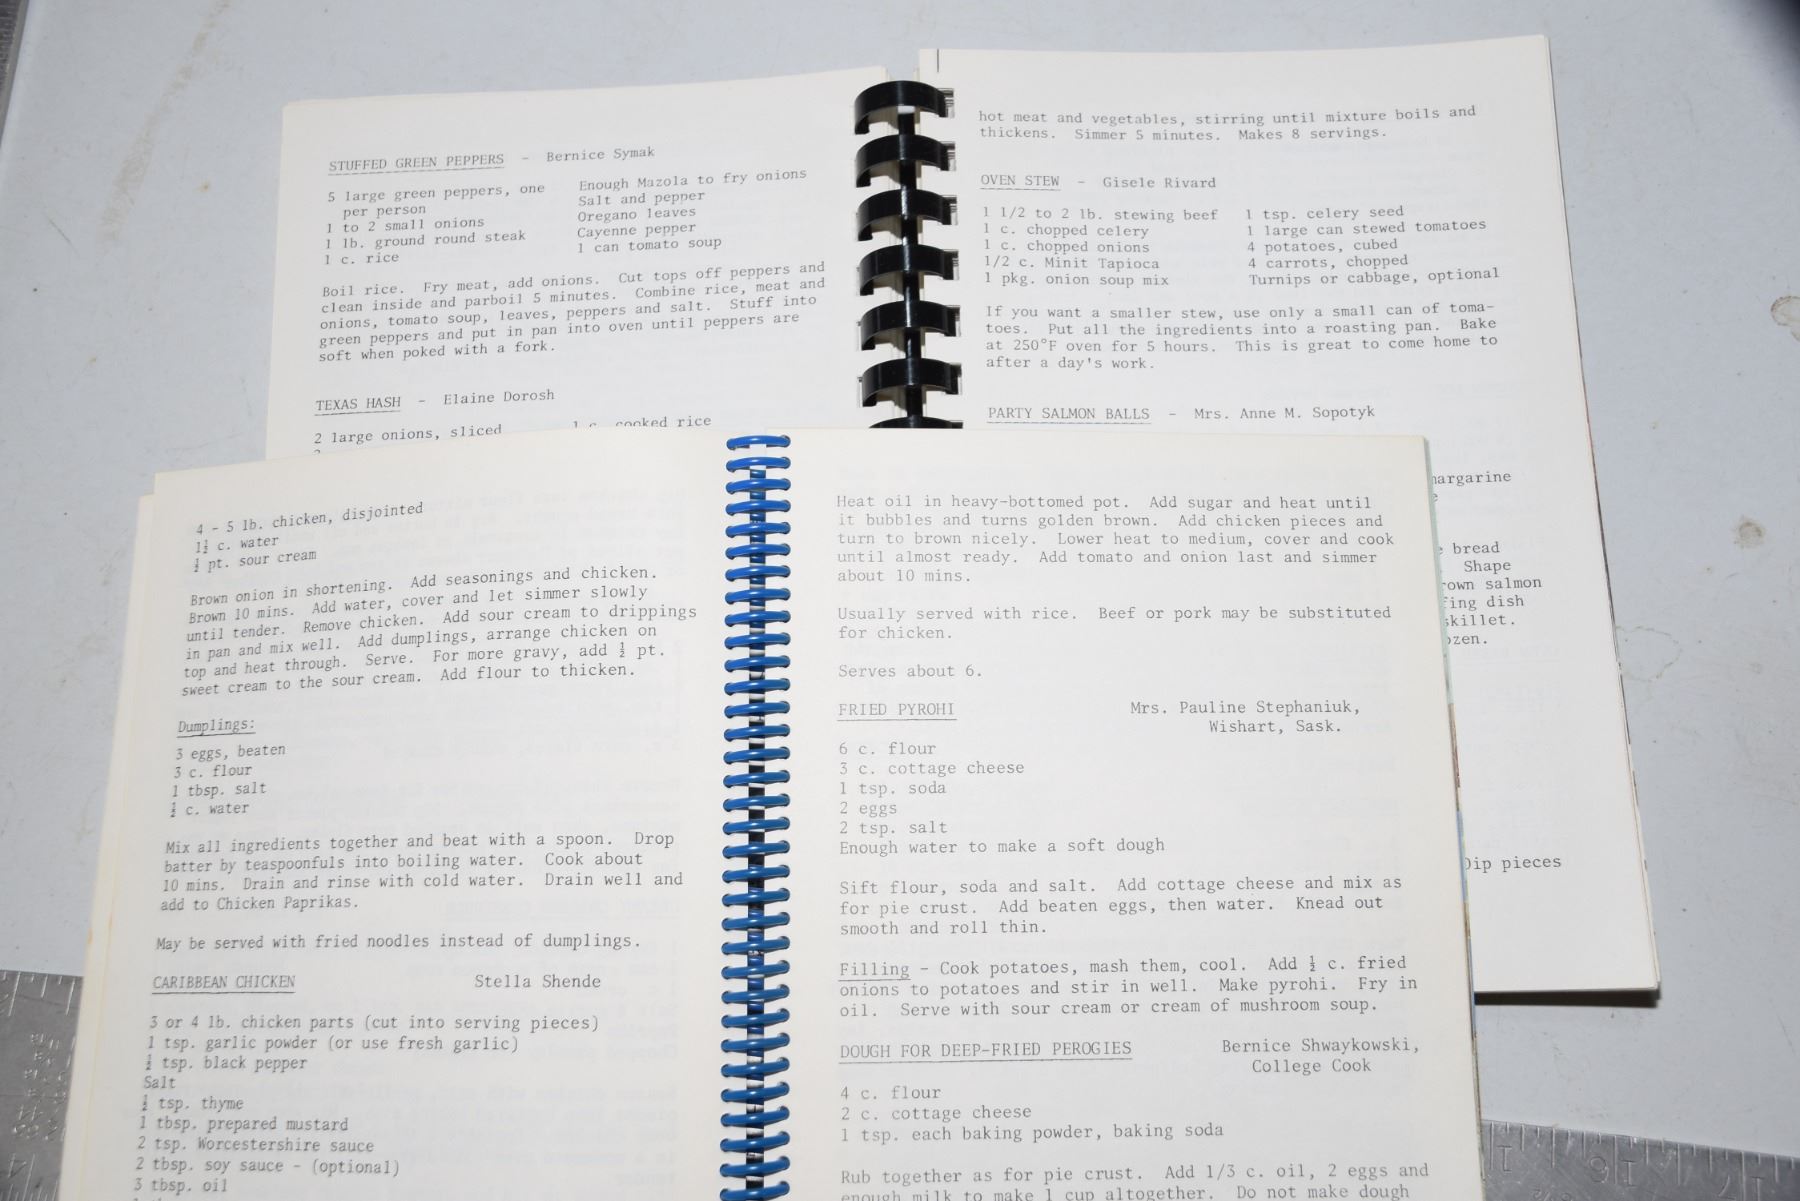 STUFFED GREEN PEPPERS - Bernice Symak
5 large green peppers, one
per person
1 to 2 small onions
1 lb. ground round steak
1 c. rice
Enough Mazola to fry onions
Salt and pepper
Oregano leaves
Cayenne pepper
1 can tomato soup
Boil rice. Fry meat, add onions. Cut tops off peppers and
clean inside and parboil 5 minutes. Combine rice, meat and
onions, tomato soup, leaves, peppers and salt. Stuff into
green peppers and put in pan into oven until peppers are
soft when poked with a fork.
TEXAS HASH - Elaine Dorosh
2 large onions, sliced
1 c. cooked rice
hot meat and vegetables, stirring until mixture boils and
thickens. Simmer 5 minutes. Makes 8 servings.
OVEN STEW - Gisele Rivard
1 1/2 to 2 lb. stewing beef
1 c. chopped celery
1 c. chopped onions
1/2 c. Minit Tapioca
1 pkg. onion soup mix
1 tsp. celery seed
1 large can stewed tomatoes
4 potatoes, cubed
4 carrots, chopped
Turnips or cabbage, optional
If you want a smaller stew, use only a small can of toma-
toes. Put all the ingredients into a roasting pan. Bake
at 250°F oven for 5 hours. This is great to come home to
after a day's work.
PARTY SALMON BALLS - Mrs. Anne M. Sopotyk
margarine
bread
Shape
own salmon
fing dish
skillet.
ozen.
Dip pieces
4 - 5 lb. chicken, disjointed
1½ c. water
½ pt. sour cream
Brown onion in shortening. Add seasonings and chicken.
Brown 10 mins. Add water, cover and let simmer slowly
until tender. Remove chicken. Add sour cream to drippings
in pan and mix well. Add dumplings, arrange chicken on
top and heat through. Serve. For more gravy, add ½ pt.
sweet cream to the sour cream. Add flour to thicken.
Dumplings:
3 eggs, beaten
3 c. flour
1 tbsp. salt
½ c. water
Mix all ingredients together and beat with a spoon. Drop
batter by teaspoonfuls into boiling water. Cook about
10 mins. Drain and rinse with cold water. Drain well and
add to Chicken Paprikas.
May be served with fried noodles instead of dumplings.
CARIBBEAN CHICKEN Stella Shende
3 or 4 lb. chicken parts (cut into serving pieces)
1 tsp. garlic powder (or use fresh garlic)
½ tsp. black pepper
Salt
½ tsp. thyme
1 tbsp. prepared mustard
2 tsp. Worcestershire sauce
2 tbsp. soy sauce - (optional)
3 tbsp. oil
Heat oil in heavy-bottomed pot. Add sugar and heat until
it bubbles and turns golden brown. Add chicken pieces and
turn to brown nicely. Lower heat to medium, cover and cook
until almost ready. Add tomato and onion last and simmer
about 10 mins.
Usually served with rice. Beef or pork may be substituted
for chicken.
Serves about 6.
FRIED PYROHI Mrs. Pauline Stephaniuk,
Wishart, Sask.
6 c. flour
3 c. cottage cheese
1 tsp. soda
2 eggs
2 tsp. salt
Enough water to make a soft dough
Sift flour, soda and salt. Add cottage cheese and mix as
for pie crust. Add beaten eggs, then water. Knead out
smooth and roll thin.
Filling - Cook potatoes, mash them, cool. Add ½ c. fried
onions to potatoes and stir in well. Make pyrohi. Fry in
oil. Serve with sour cream or cream of mushroom soup.
DOUGH FOR DEEP-FRIED PEROGIES Bernice Shwaykowski,
College Cook
4 c. flour
2 c. cottage cheese
1 tsp. each baking powder, baking soda
Rub together as for pie crust. Add 1/3 c. oil, 2 eggs and
enough milk to make 1 cup altogether. Do not make dough